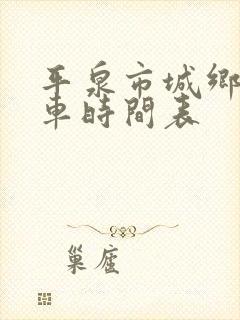 平泉市城鄉
車時間表
巢座